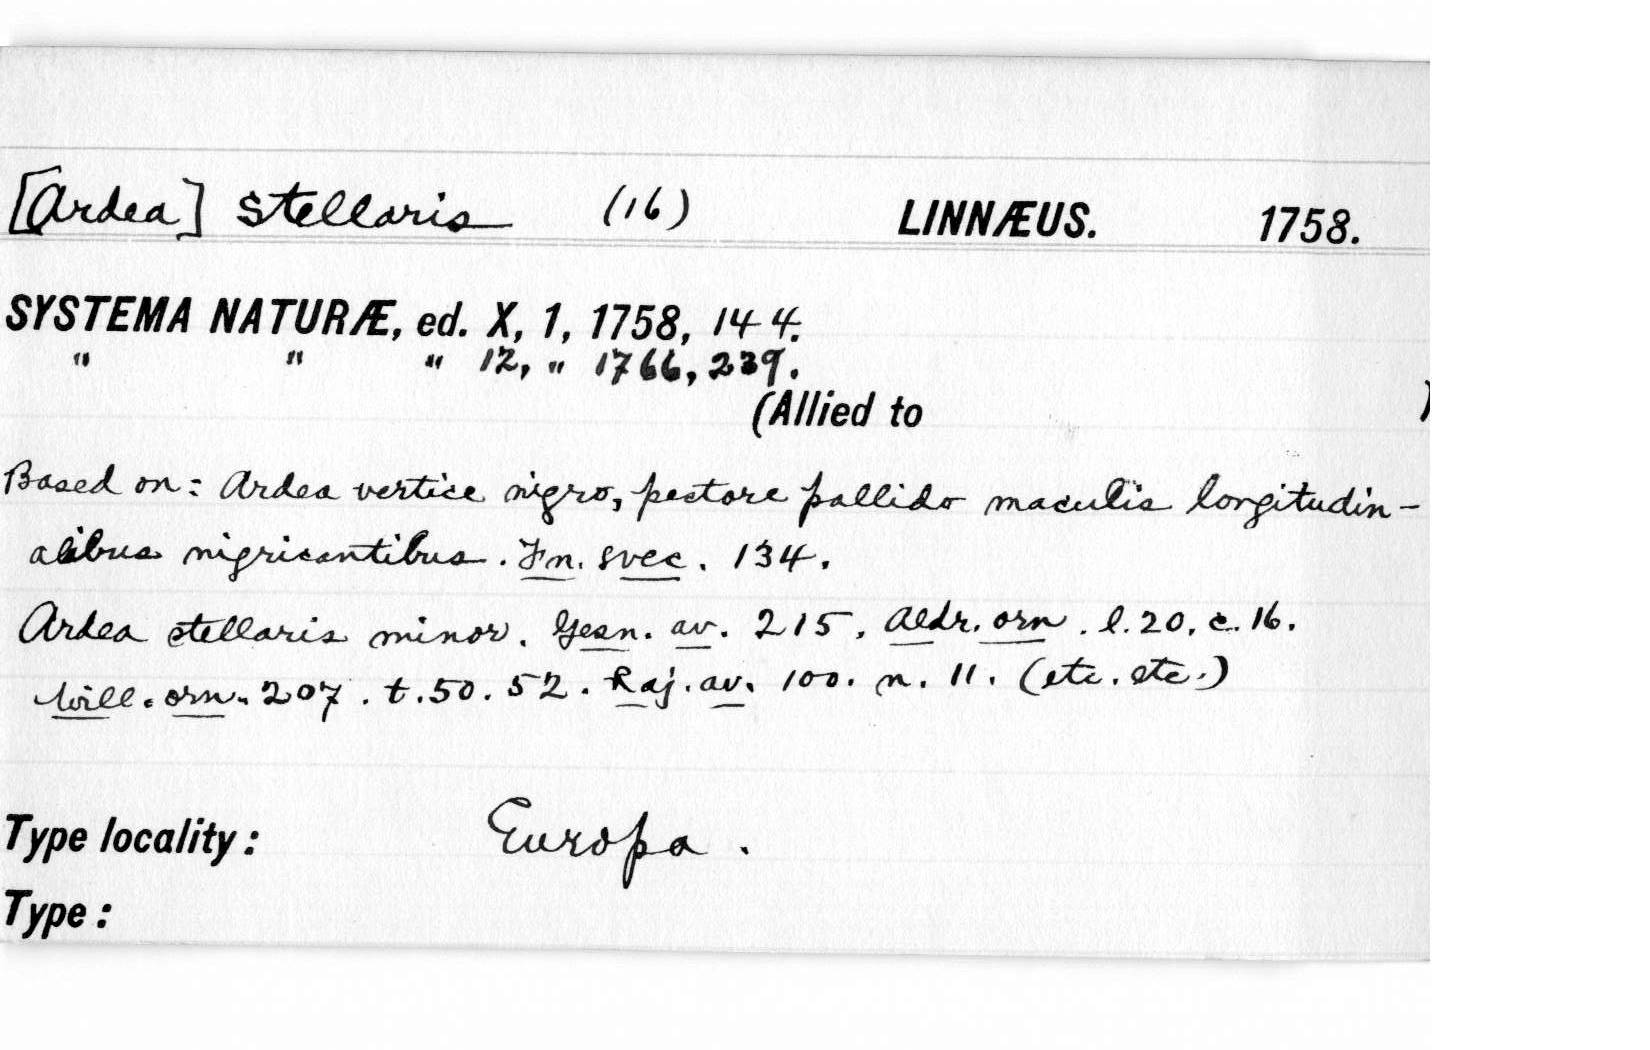 [Ardea] stellaris (16) LINNÆUS. 1758.
SYSTEMA NATURÆ, ed. X, 1, 1758, 144.
" " " 12, " 1766, 239.
(Allied to )
Based on: Ardea vertice nigro, pectore pallido maculis longitudin-
alibus nigricantibus. Fn. svec. 134.
Ardea stellaris minor. Gesn. av. 215. Aldr. orn. l.20. c. 16.
Will. orn. 207. t.50. 52. Raj. av. 100. n. 11. (etc. etc.)
Type locality: Europa.
Type: